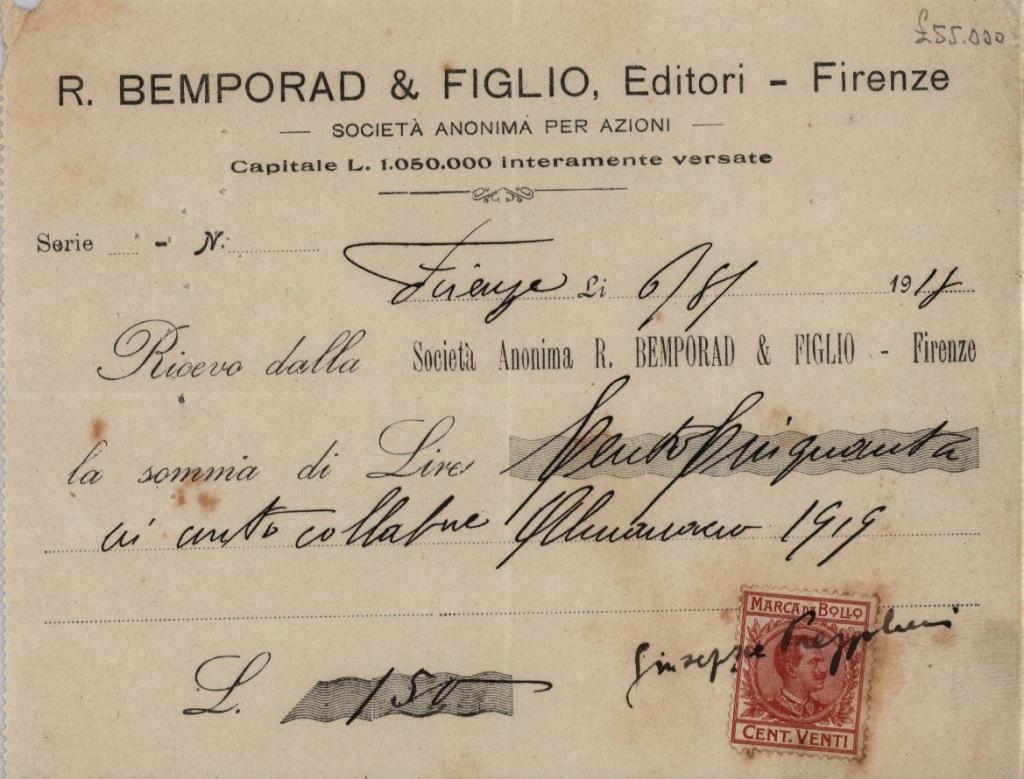 £55.000
R. BEMPORAD & FIGLIO, Editori - Firenze
SOCIETÀ ANONIMA PER AZIONI
Capitale L. 1.050.000 interamente versate
Serie - N.
Firenze li 6/8/ 1918
Ricevo dalla Società Anonima R. BEMPORAD & FIGLIO - Firenze
la somma di Lire CentoCinquanta
in conto collabne Almanacco 1919
MARCA DA BOLLO
Giuseppe
L. 150
CENT. VENTI